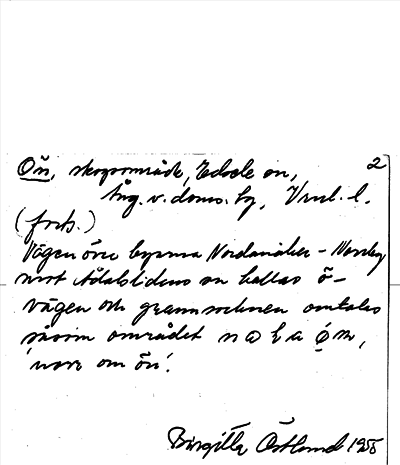 Ön, skogsområde, Edsele sn, 2
Ång. v. doms. hg, Vnrl. l.
(forts.)
Vägen över byarna Nordanåker –
mot Ådalslidens sn kallas ö-
vägen och grannsocknen omtalas
såsom området
'norr om ön'.
Birgitta Östlund 1955